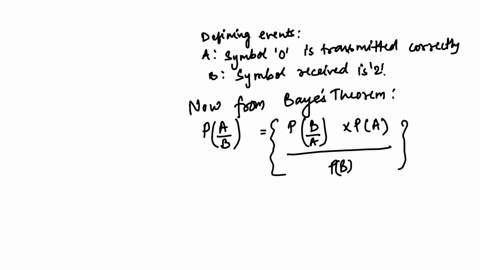 Defining events:
A: Symbol '0' is transmitted correctly
B: Symbol received is '2'.
Now from Baye's Theorem:
P(A/B) = { P(B/A) x P(A) / P(B) }